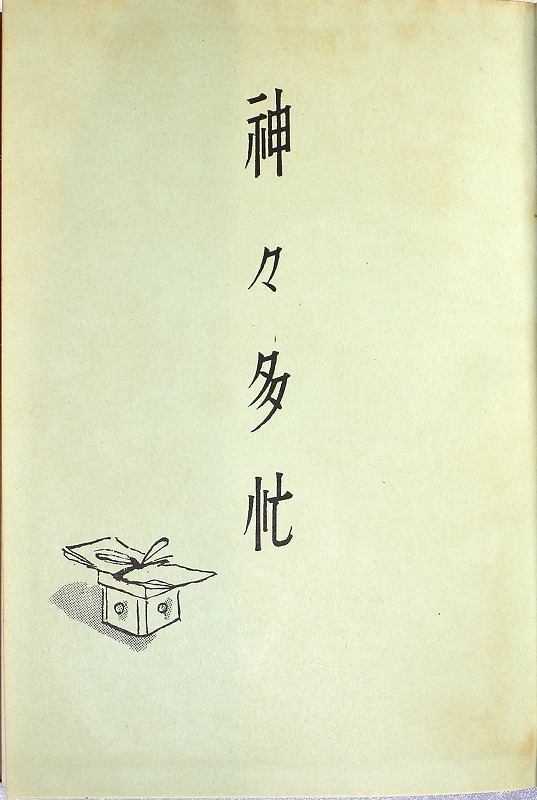 神々多忙